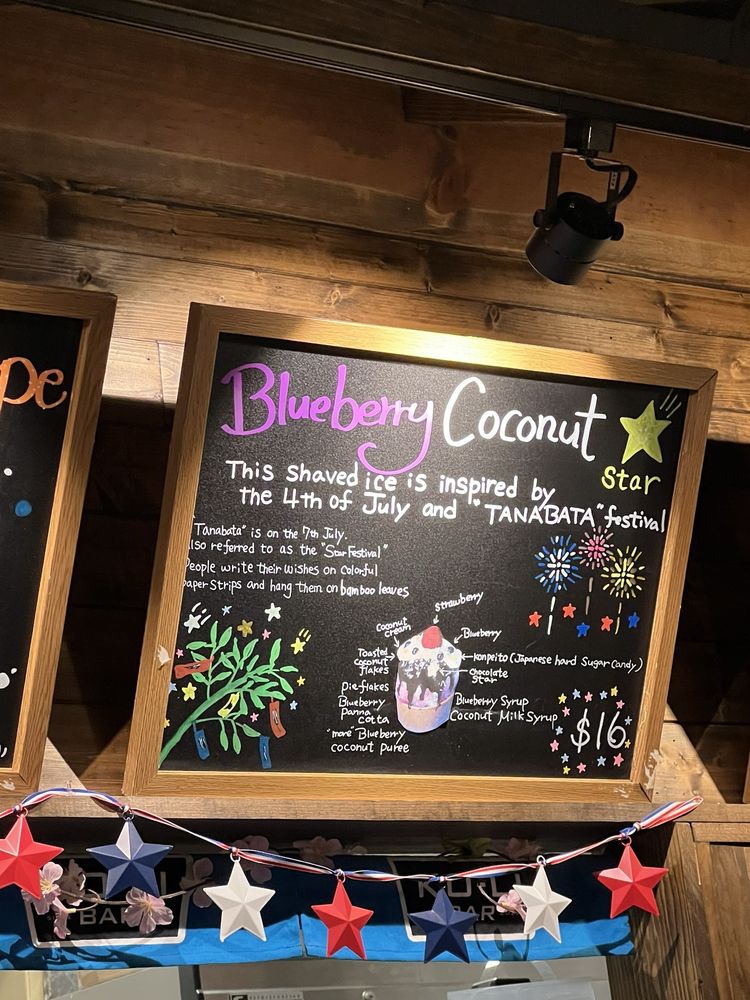 pe
Blueberry Coconut
Star
This shaved ice is inspired by
the 4th of July and "TANABATA" festival
"Tanabata" is on the 7th July.
lso referred to as the "Star Festival"
People write their wishes on colorful
aper strips and hang them on bamboo leaves
Strawberry
Coconut
cream
Blueberry
Toasted
coconut
flakes
Konpeito (Japanese hard sugar candy)
chocolate
star
pie flakes
Blueberry
panna
cotta
Blueberry Syrup
Coconut Milk Syrup
"more" Blueberry
coconut puree
$16
BAR